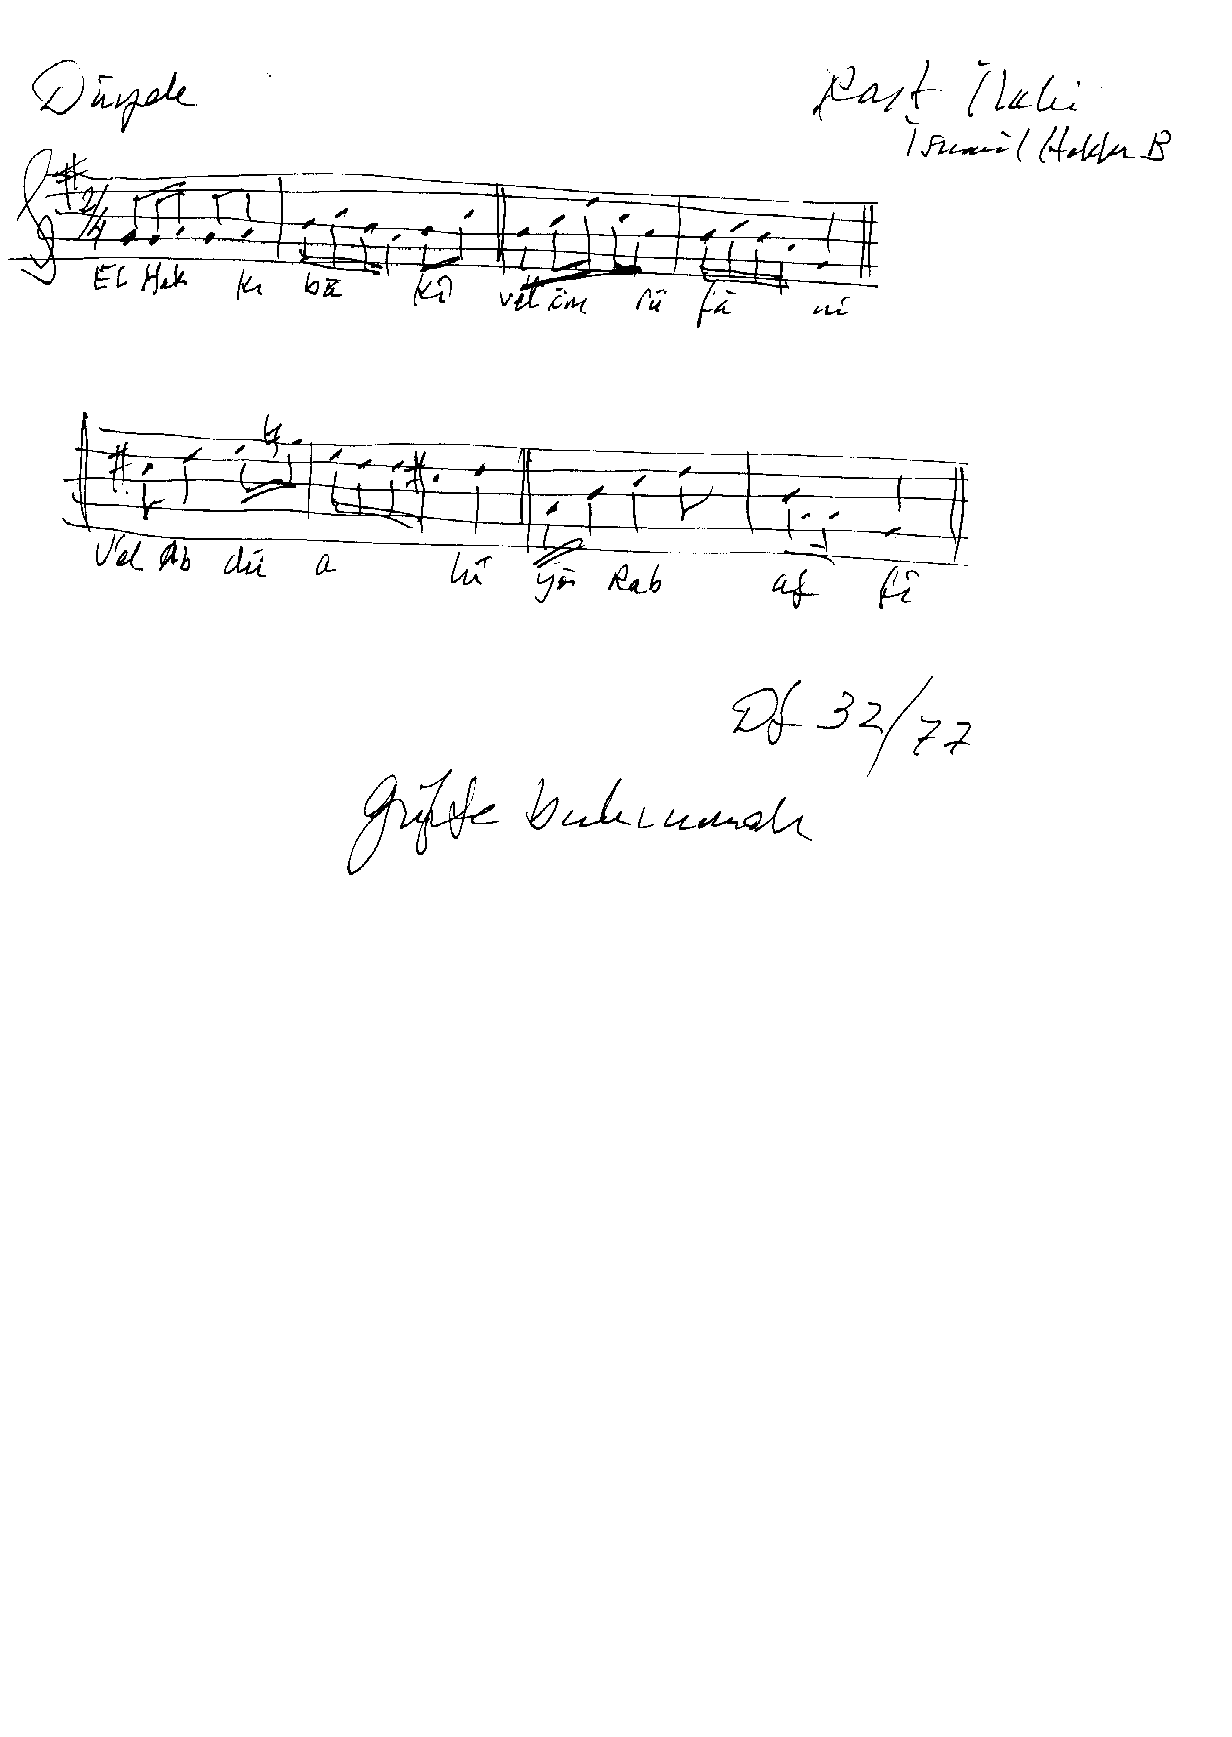 Düyek
Rast İlahi
İsmail Hakkı B
2/4
El Hak kı bâ kî vel öm rü fâ ni
Vel Ab dü a lî yön Rab af fi
Df 32/77
Güfte bulunmadı